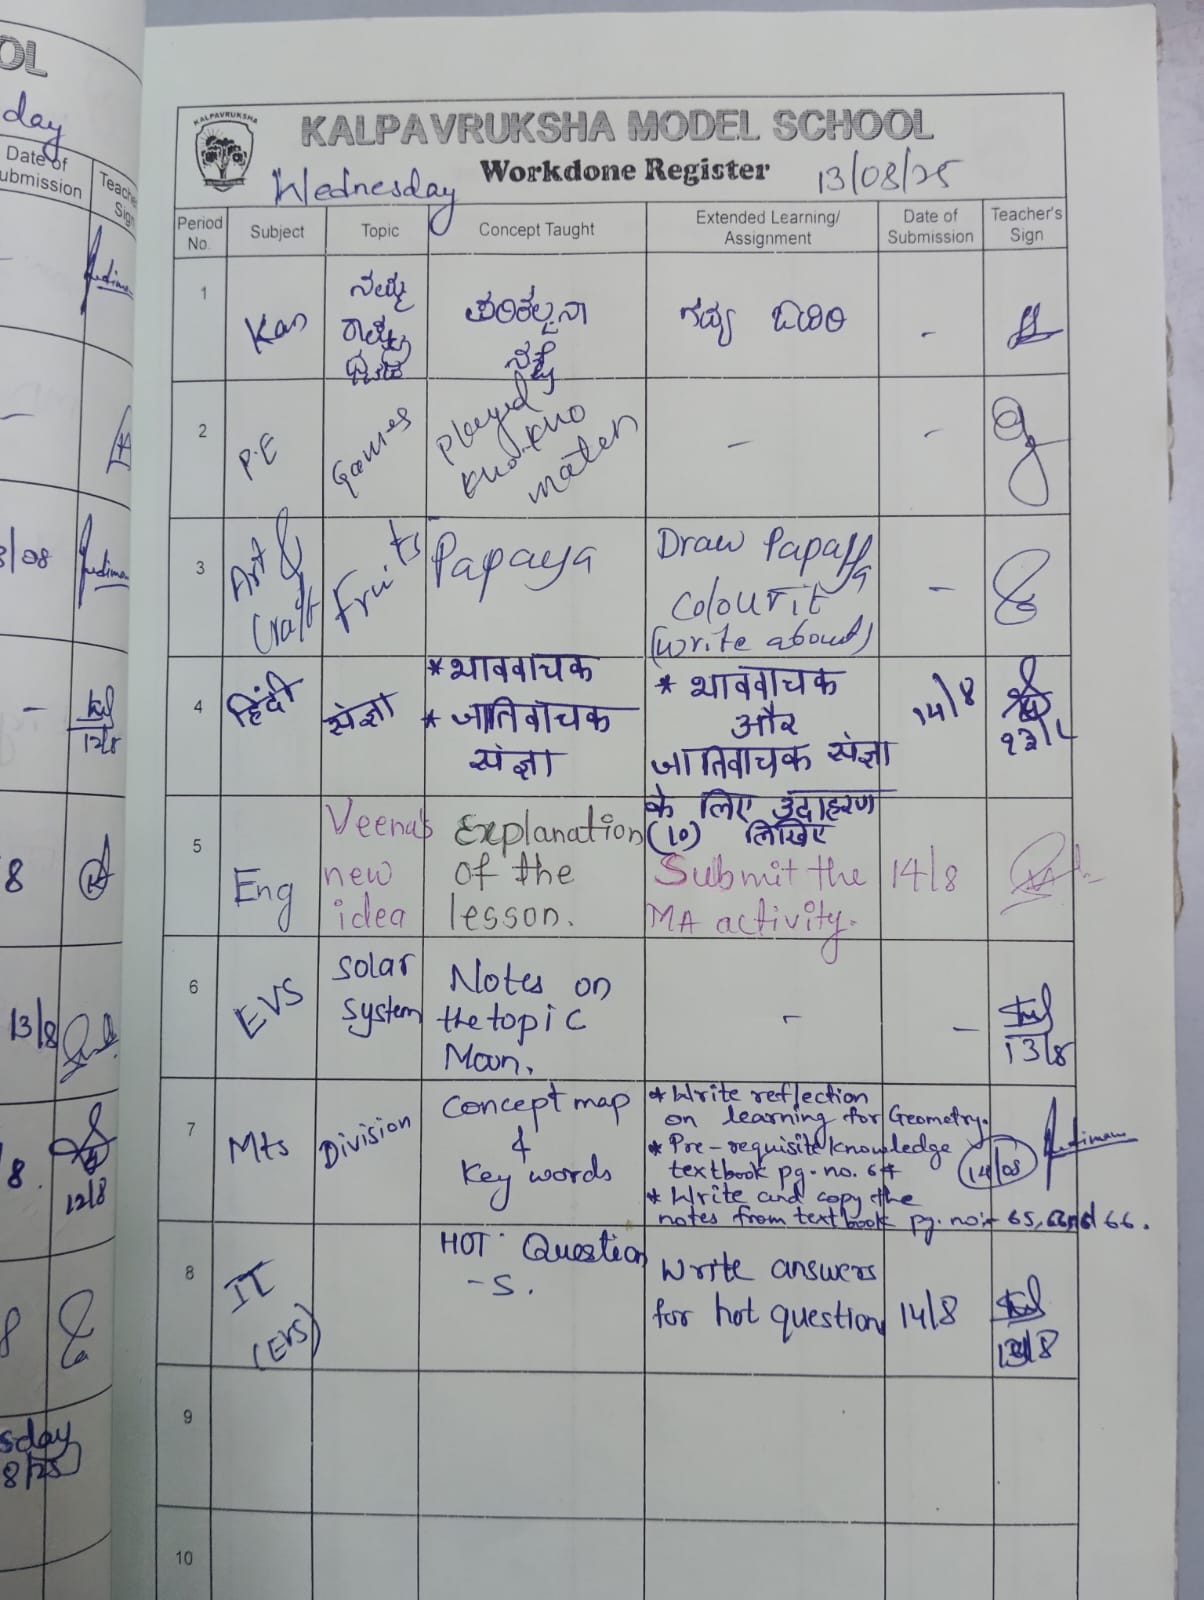 OL
day
Date of
ubmission
KALPAVRUKSHA
KALPAVRUKSHA MODEL SCHOOL
Workdone Register
Wednesday
13/08/25
Period No.
Subject
Topic
Concept Taught
Extended Learning/ Assignment
Date of Submission
Teacher's Sign
1
Kan
ನಮ್ಮ
ರಾಷ್ಟ್ರ
ಧ್ವಜ
ಪರಿಕಲ್ಪನಾ
ನಕ್ಷೆ
ಗದ್ಯ ಬರಿರಿ
-
2
P.E
Games
played
kho-kho
match
-
-
3
Art &
Craft
Fruits
Papaya
Draw Papaya
Colour it
(write about)
-
4
हिंदी
संज्ञा
* भाववाचक
* जातिवाचक
संज्ञा
* भाववाचक
और
जातिवाचक संज्ञा
के लिए उदाहरण
(10) लिखिए
14/8
5
Eng
Veena's
new
idea
Explanation
of the
lesson.
Submit the
MA activity.
14/8
6
EVS
Solar
system
Notes on
the topic
Moon.
-
-
13/8
7
Mts
Division
Concept map
&
Key words
* Write reflection
on learning for Geometry.
* Pre-requisite knowledge
textbook pg. no. 64
* Write and copy the
notes from textbook pg. no:- 65, and 66.
14/08
8
IT
(EVS)
HOT Question
-s.
Write answers
for hot question
14/8
13/8
9
10
3/08
12/8
8
13/8
8.
12/8
8
sday
8/25